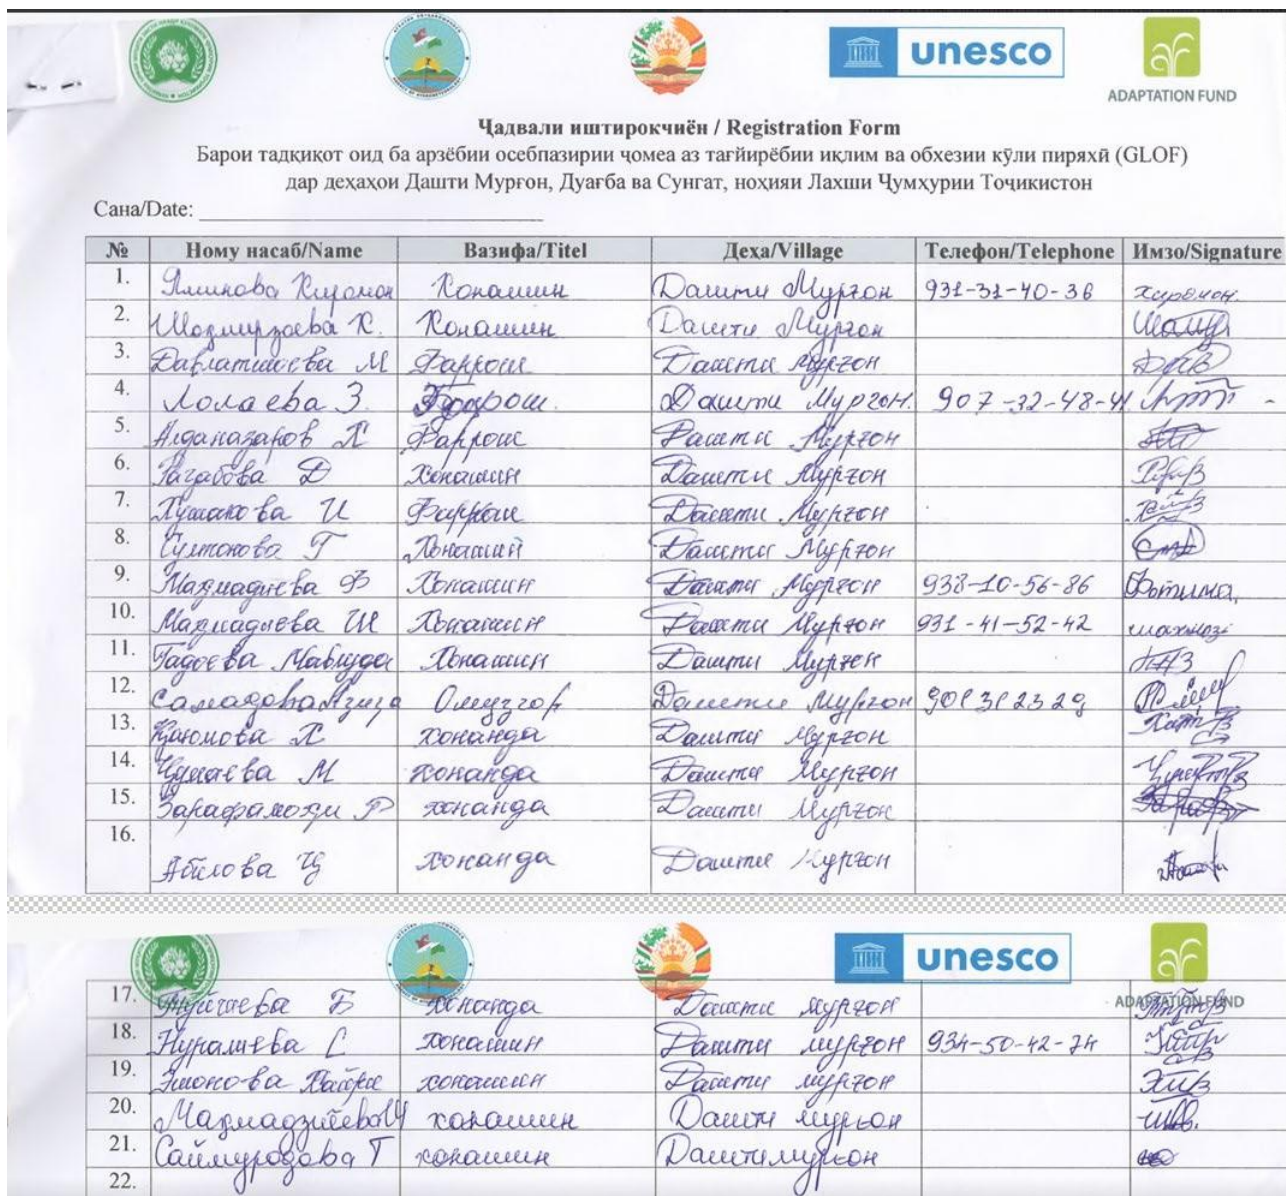 unesco
ADAPTATION FUND
Ҷадвали иштирокчиён / Registration Form
Барои тадқиқот оид ба арзёбии осебпазирии ҷомеа аз тағйирёбии иқлим ва обхезии кӯли пиряхӣ (GLOF)
дар деҳаҳои Дашти Мурғон, Дуағба ва Сунгат, ноҳияи Лахши Ҷумҳурии Тоҷикистон
Сана/Date:
№ Ному насаб/Name Вазифа/Titel Деҳа/Village Телефон/Telephone Имзо/Signature
1. Аминова Хиромон Хонашин Дашти Мурғон 931-31-40-36 хиромон.
2. Шодмирзоева Х. Хонашин Дашти Мурғон
3. Давлатшоева М Фаррош Дашти Мурғон
4. Лолаева З. Фаррош. Дашти Мургон. 907-32-48-41
5. Фаррош Дашти Мурғон
6. Раҷабова Д Хонашин Дашти Мурғон
7. Фаррош Дашти Мурғон
8. Султонова Г Хонашин Дашти Мурғон
9. Маҳмадиева Ф Хонашин Дашти Мурғон 938-10-56-86 Фотима.
10. Маҳмадиева Ш Хонашин Дашти Мурғон 931-41-52-42
11. Гадоева Мавлуда Хонашин Дашти Мурғон
12. Самадова Азиза Омузгор Дашти Мурғон 901312329
13. Қаюмова Х хонанда Дашти Мурғон
14. Ҷумаева М хонанда Дашти Мурғон
15. Зарафамоҳи Р хонанда Дашти Мурғон
16. Абилова Ҷ хонанда Дашти Мурғон
unesco
ADAPTATION FUND
17. Б хонанда Дашти мурғон
18. Нуралиева С хонашин Дашти мурғон 934-50-42-74
19. Эмонова хонашин Дашти мурғон
20. Маҳмадзиёева Ш хонашин Дашти мурғон
21. Саймуродова Т хонашин Дашти мурғон
22.